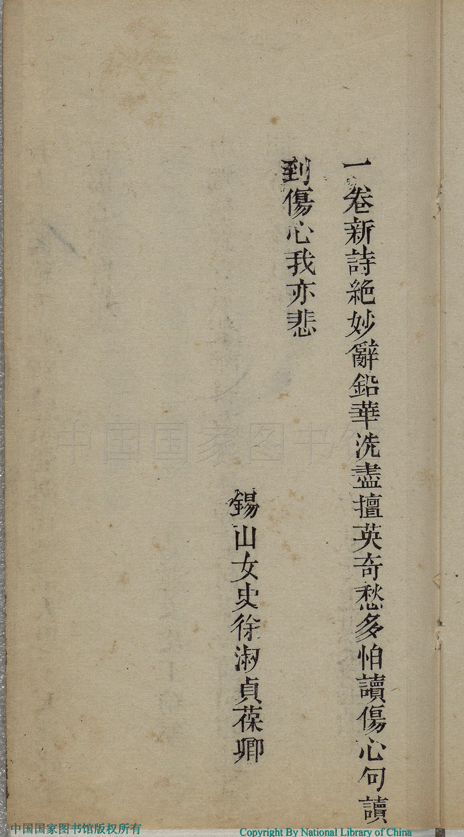 一卷新詩絶妙辭鉛華洗盡擅英奇愁多怕讀傷心句讀
到傷心我亦悲
錫山女史徐淑貞葆卿
中国国家图书馆
中国国家图书馆版权所有
Copyright By National Library of China